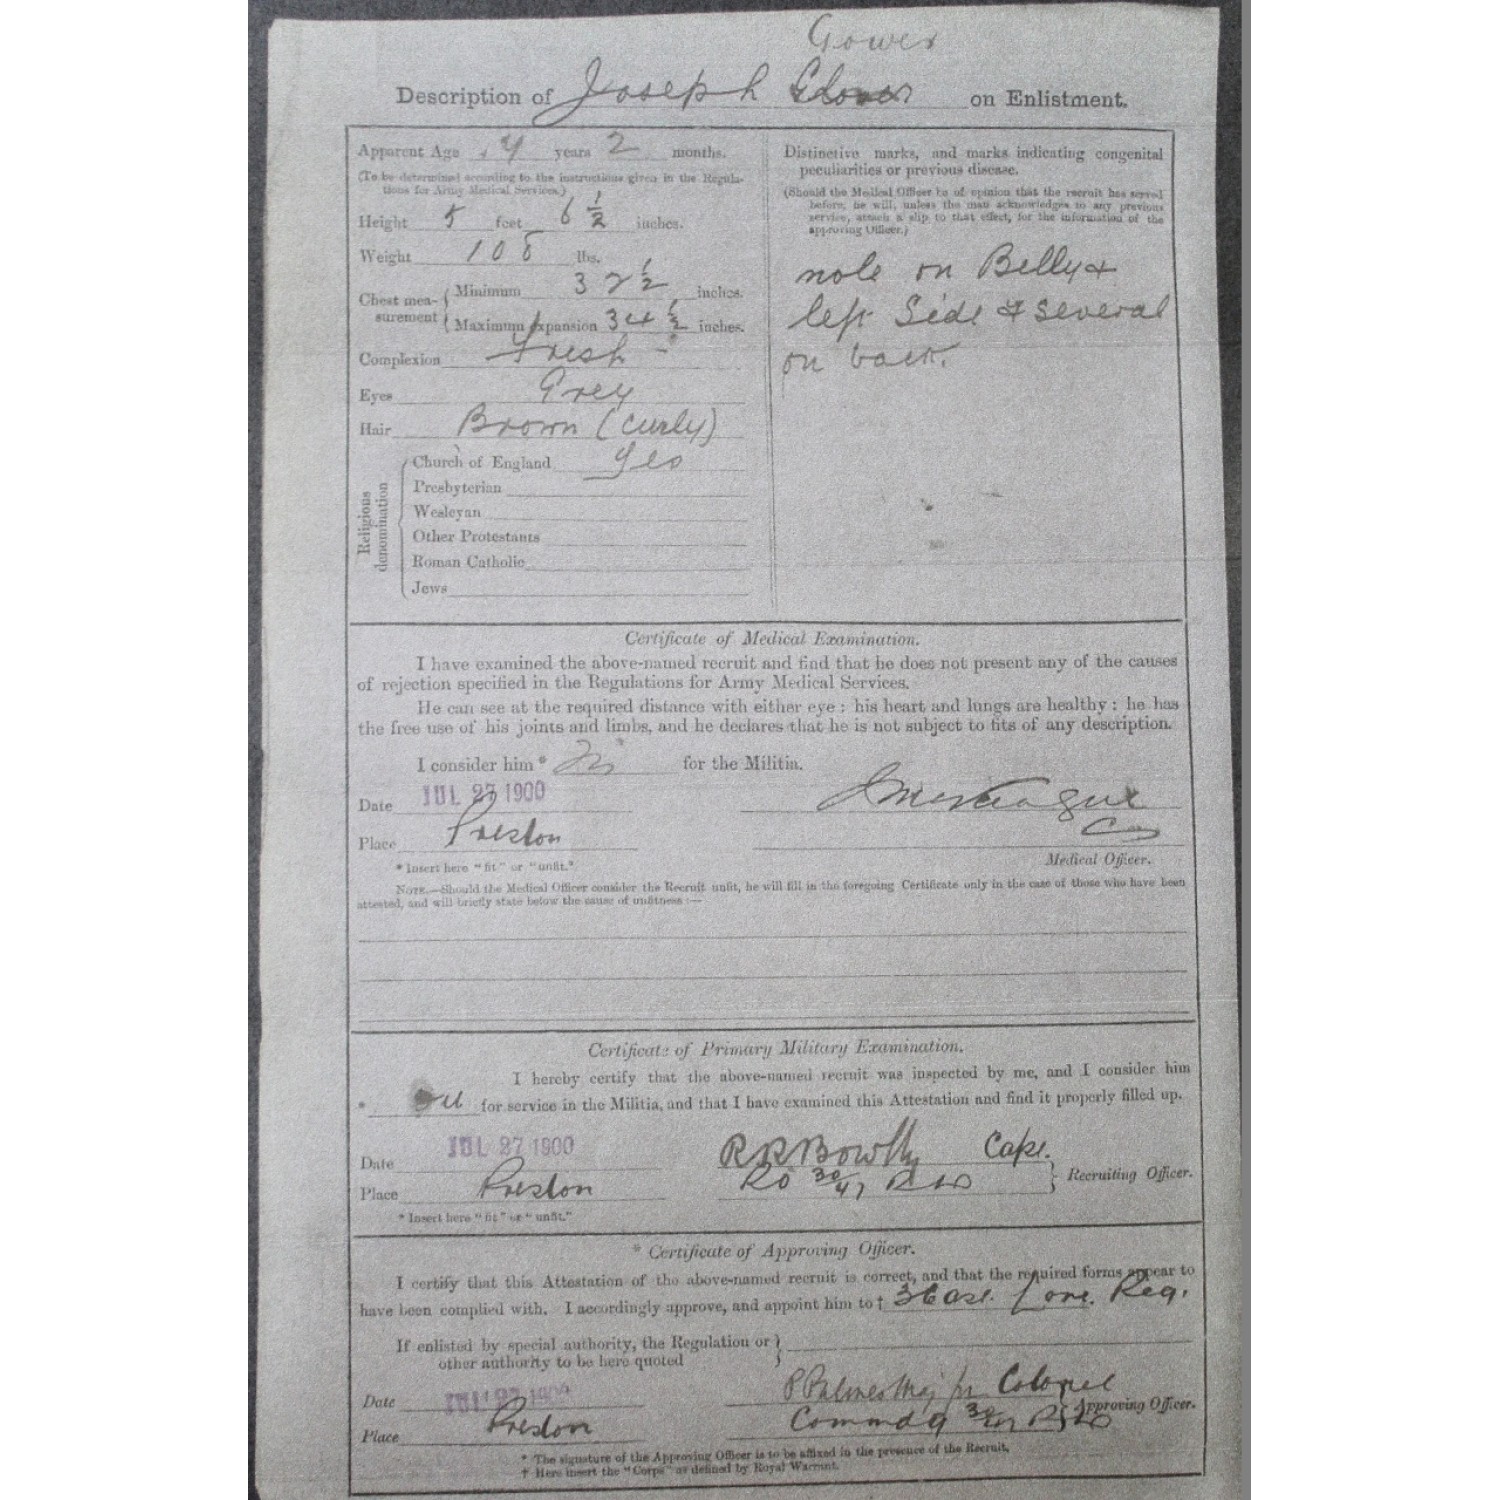 Gower
Description of Joseph Glover on Enlistment.
Apparent Age years 2 months.
(To be determined according to the instructions given in the Regula-
tions for Army Medical Services.)
Height 5 feet 6 1/2 inches.
Weight 108 lbs.
Chest mea-
surement
Minimum 32 1/2 inches.
Maximum Expansion 34 1/2 inches.
Complexion Fresh
Eyes Grey
Hair Brown (curly)
Religious
denomination
Church of England Yes
Presbyterian
Wesleyan
Other Protestants
Roman Catholic
Jews
Distinctive marks, and marks indicating congenital
peculiarities or previous disease.
(Should the Medical Officer be of opinion that the recruit has served
before, he will, unless the man acknowledges to any previous
service, attach a slip to that effect, for the information of the
approving Officer.)
mole on Belly &
left Side & several
on back.
Certificate of Medical Examination.
I have examined the above-named recruit and find that he does not present any of the causes
of rejection specified in the Regulations for Army Medical Services.
He can see at the required distance with either eye; his heart and lungs are healthy; he has
the free use of his joints and limbs, and he declares that he is not subject to fits of any description.
I consider him * for the Militia.
Date JUL 27 1900
Place Preston
Medical Officer.
* Insert here "fit" or "unfit."
NOTE.—Should the Medical Officer consider the Recruit unfit, he will fill in the foregoing Certificate only in the case of those who have been
attested, and will briefly state below the cause of unfitness:—
Certificate of Primary Military Examination.
I hereby certify that the above-named recruit was inspected by me, and I consider him
* for service in the Militia, and that I have examined this Attestation and find it properly filled up.
Date JUL 27 1900
Place Preston
Capt.
Recruiting Officer.
* Insert here "fit" or "unfit."
* Certificate of Approving Officer.
I certify that this Attestation of the above-named recruit is correct, and that the required forms appear to
have been complied with. I accordingly approve, and appoint him to † Reg.
If enlisted by special authority, the Regulation or
other authority to be here quoted
Date JUL 27 1900
Place Preston
P Palmer Maj for Colonel
Commdg
Approving Officer.
* The signature of the Approving Officer is to be affixed in the presence of the Recruit.
† Here insert the "Corps" as defined by Royal Warrant.